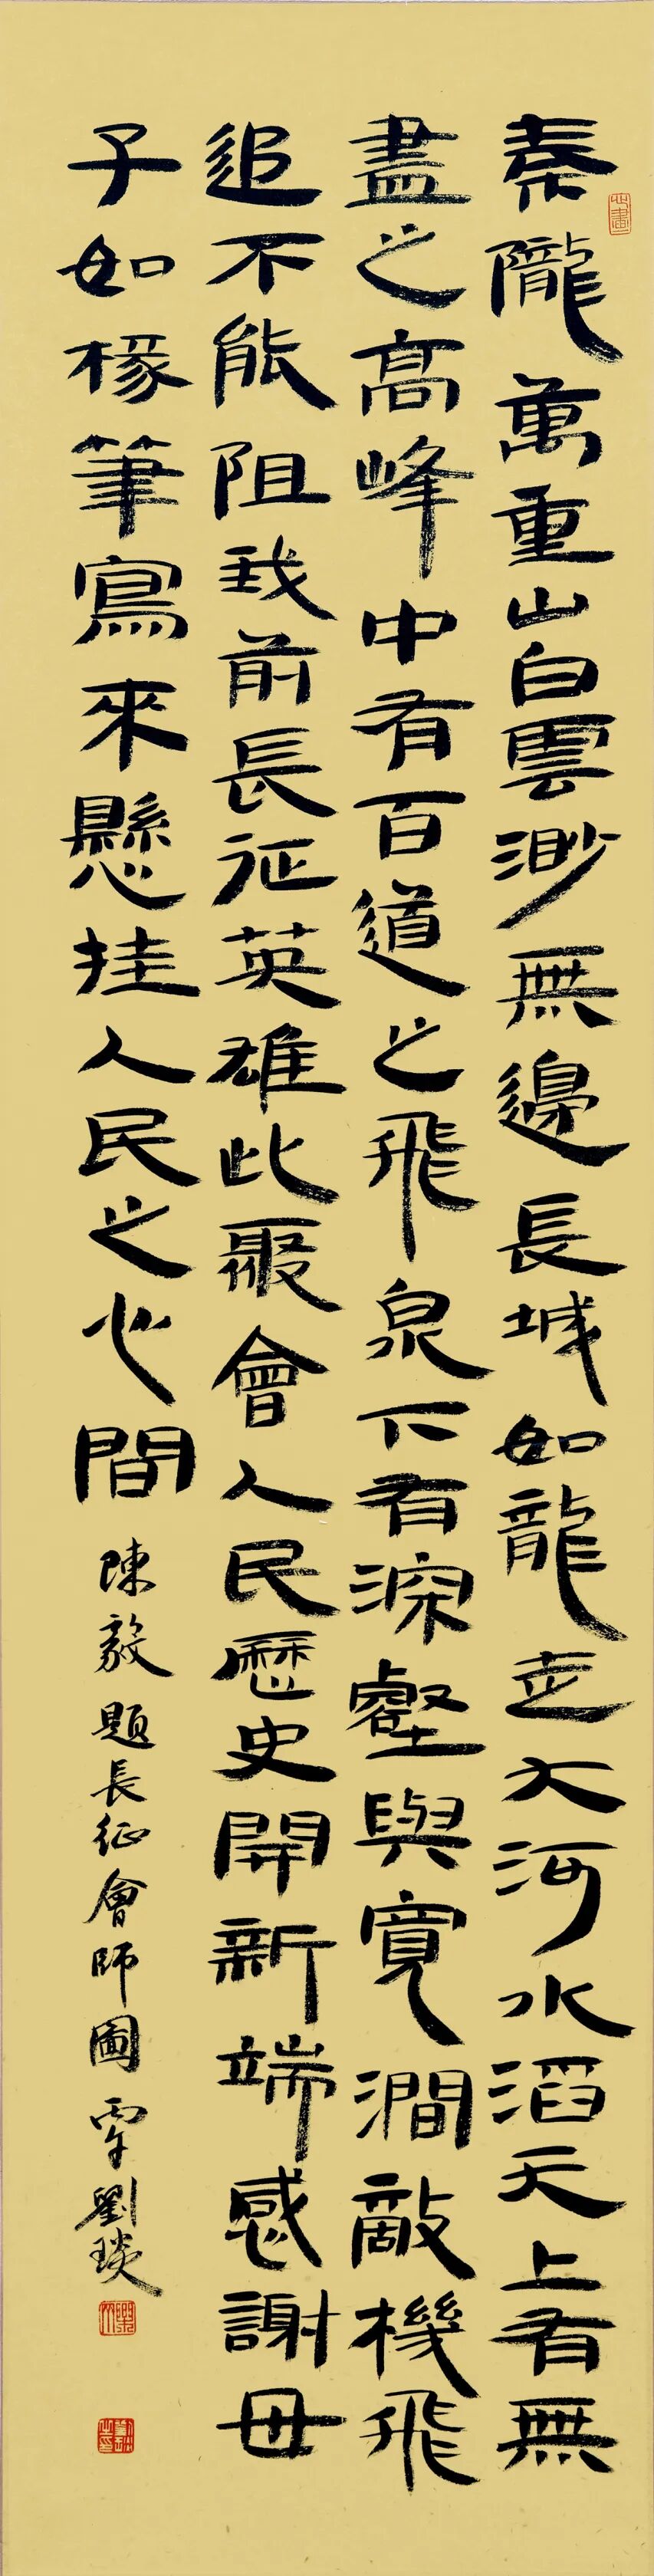 心畫
秦隴萬重山白雲渺無邊長城如龍走大河水滔天上有無
盡之高峰中有百道之飛泉下有深壑與寬澗敵機飛
追不能阻我前長征英雄此聚會人民歷史開新端感謝毋
子如椽筆寫來懸挂人民之心間 陳毅題長征會師圖 丙午劉琰